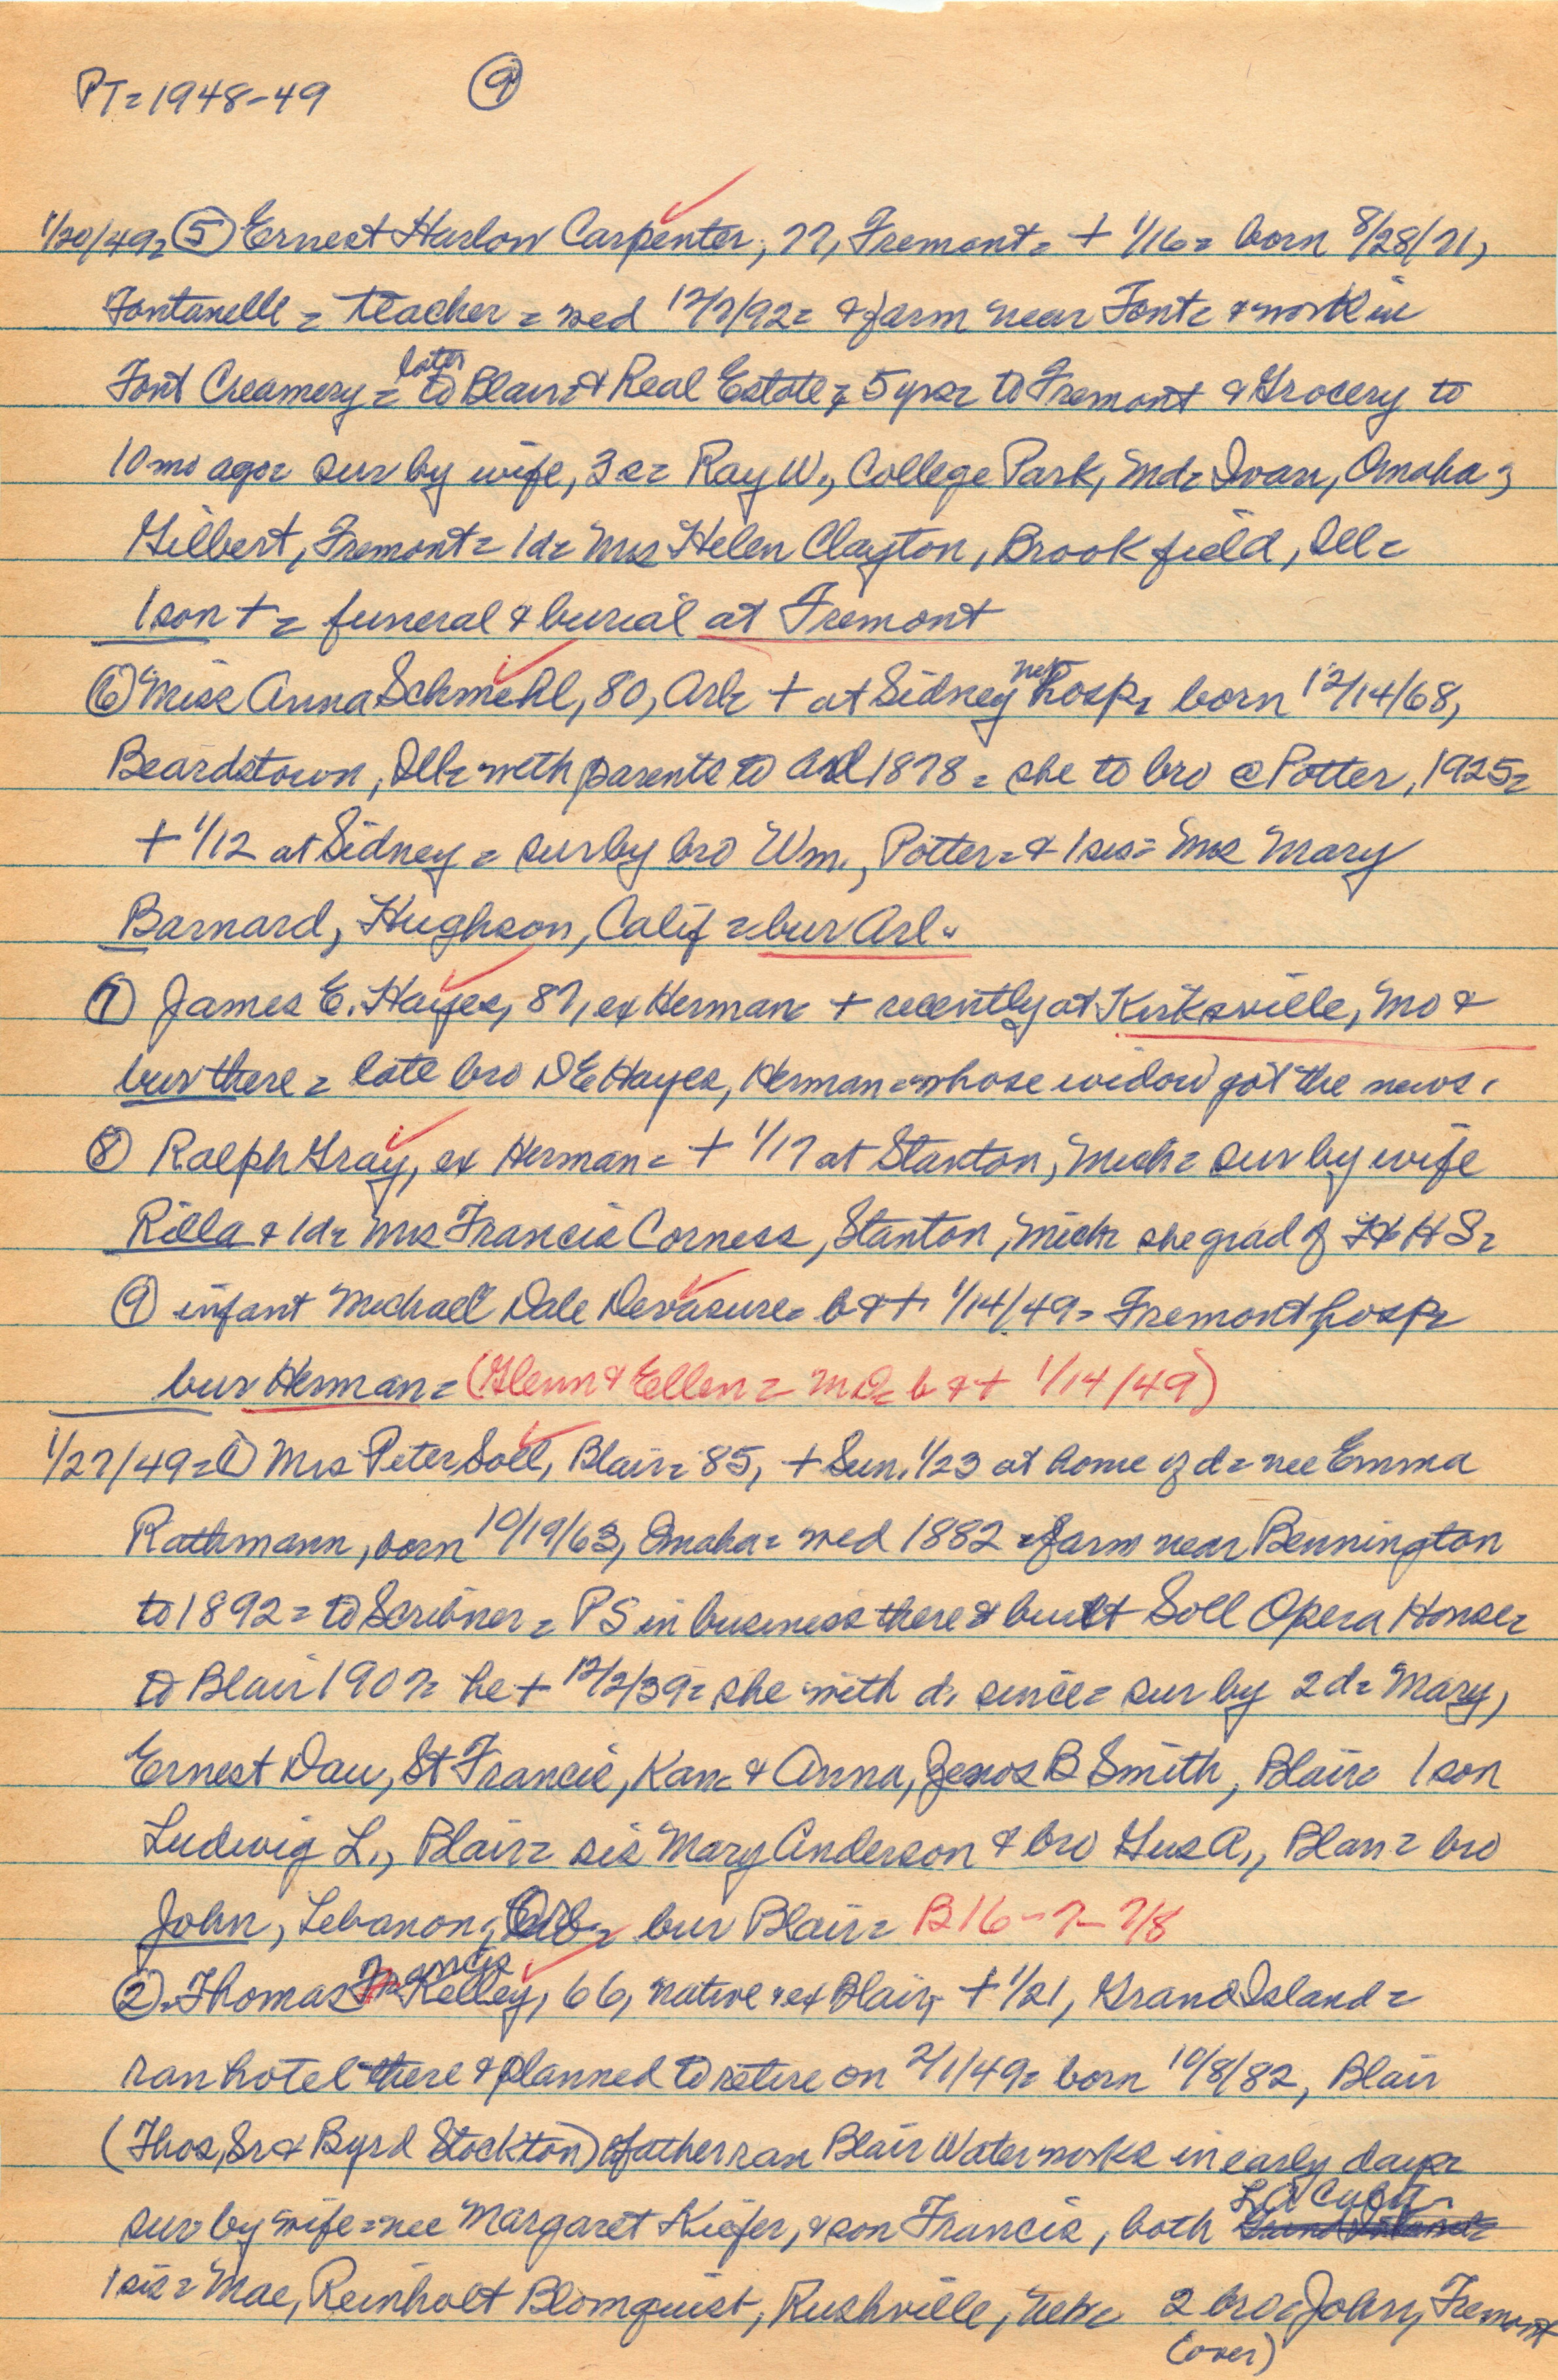 PT= 1948-49 (9)
1/20/49= (5) Ernest Harlow Carpenter, 77, Fremont= + 1/16= born 8/28/71,
Fontanelle = teacher = wed 12/7/92= & farm near Font= & work in
Font Creamery = later to Blair= & Real Estate & 5 yrs= to Fremont & Grocery to
10 mo ago= sur by wife, 3 s= Ray W., College Park, Md= Ivan, Omaha &
Gilbert, Fremont= 1d= Mrs Helen Clayton, Brookfield, Ill=
1 son + = funeral & burial at Fremont
(6) Miss Anna Schmehl, 80, Arl= + at Sidney hosp= born 12/14/68,
Beardstown, Ill= with parents to Arl 1878 = she to bro @ Potter, 1925=
+ 1/12 at Sidney = sur by bro Wm., Potter= & 1 sis= Mrs Mary
Barnard, Hughson, Calif = bur Arl=
(7) James E. Hayes, 87, ex Herman= + recently at Kirksville, Mo &
bur there = late bro DE Hayes, Herman = whose widow got the news.
(8) Ralph Gray, ex Herman= + 1/17 at Stanton, Mich= sur by wife
Rilla & 1d= Mrs Francis Corness, Stanton, Mich= she grad of HHS=
(9) infant Michael Dale Devasure= b & + 1/14/49= Fremont hosp=
bur Herman= (Glenn & Ellen= MD= b & + 1/14/49)
1/27/49= (1) Mrs Peter Soll, Blair= 85, + Sun. 1/23 at home of d= nee Emma
Rathmann, born 10/19/63, Omaha= wed 1882 = farm near Bennington
to 1892 = to Scribner = PS in business there & built Soll Opera House=
to Blair 1907= he + 12/2/39= she with d. since= sur by 2d= Mary,
Ernest Dau, St Francis, Kan= & Anna, B Smith, Blair= 1 son
Ludwig L., Blair= sis Mary Anderson & bro Gus A., Blair= bro
John, Lebanon, bur Blair= B16-7-7/8
(2) Thomas Francis Kelley, 66, native & ex Blair, + 1/21, Grand Island=
ran hotel there & planned to retire on 2/1/49= born 10/8/82, Blair
(Thos, Sr & Byrd Stockton) father ran Blair Waterworks in early days=
sur by wife = nee Margaret Kiefer, & son Francis, both
1 sis= Mae, Reinholt Blomquist, Rushville, Neb= 2 bro= John, Fremont
(over)